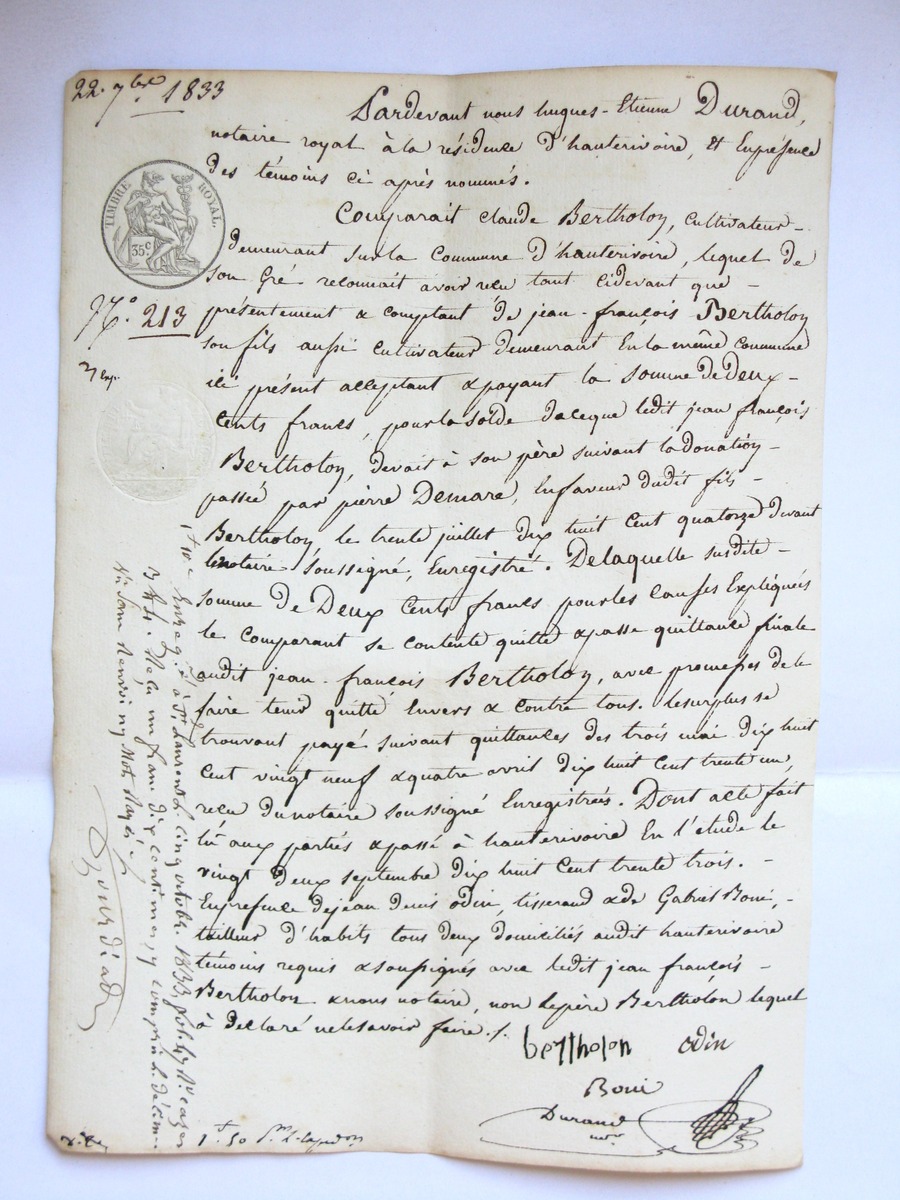 22. 7bre. 1833
Pardevant nous hugues-Etienne Durand,
notaire royal à la résidence d'hauterivoire, et En présence
des témoins ci après nommés.
TIMBRE ROYAL
35c
Comparait claude Bertholon, cultivateur
demeurant sur la Commune d'hauterivoire, lequel de
son Gré reconnait avoir reçu tant cidevant que
No. 213
présentement & comptant de jean-françois Bertholon
son fils aussi cultivateur demeurant En la même commune
3 Exp.
ici présent acceptant & payant la somme de deux
Cents francs, pour la solde de ce que ledit jean françois
Bertholon, devait à son père suivant la donation
passée par pierre Demare, En faveur dudit fils
Bertholon, le trente juillet dix huit Cent quatorze devant
le notaire soussigné, Enregistré. De laquelle susdite
somme de Deux Cents francs pour les causes Expliquées
le comparant se contente quitte & passe quittance finale
audit jean-françois Bertholon, avec promesses de le
faire tenir quitte Envers & contre tous. le surplus se
trouvant payé suivant quittances des trois mai dix huit
cent vingt neuf & quatre avril dix huit Cent trente un,
reçu du notaire soussigné Enregistrées. Dont acte fait
lû aux parties & passé à hauterivoire En l'étude le
vingt deux septembre dix huit Cent trente trois.
En présence de jean denis odin, tisserand & de Gabriel Boni,
tailleur d'habits tous deux domiciliés audit hauterivoire
témoins requis & soussignés avec ledit jean françois
Bertholon & nous notaire, non le père Bertholon lequel
à déclaré ne le savoir faire./.
bertholon odin
Boni
Durand
nore
Enreg.é à St Laurent le cinq octobre 1833, fol. 47 Ro. cases
3 & 4. Reçu un franc dix centimes, y compris le décime
1f 50